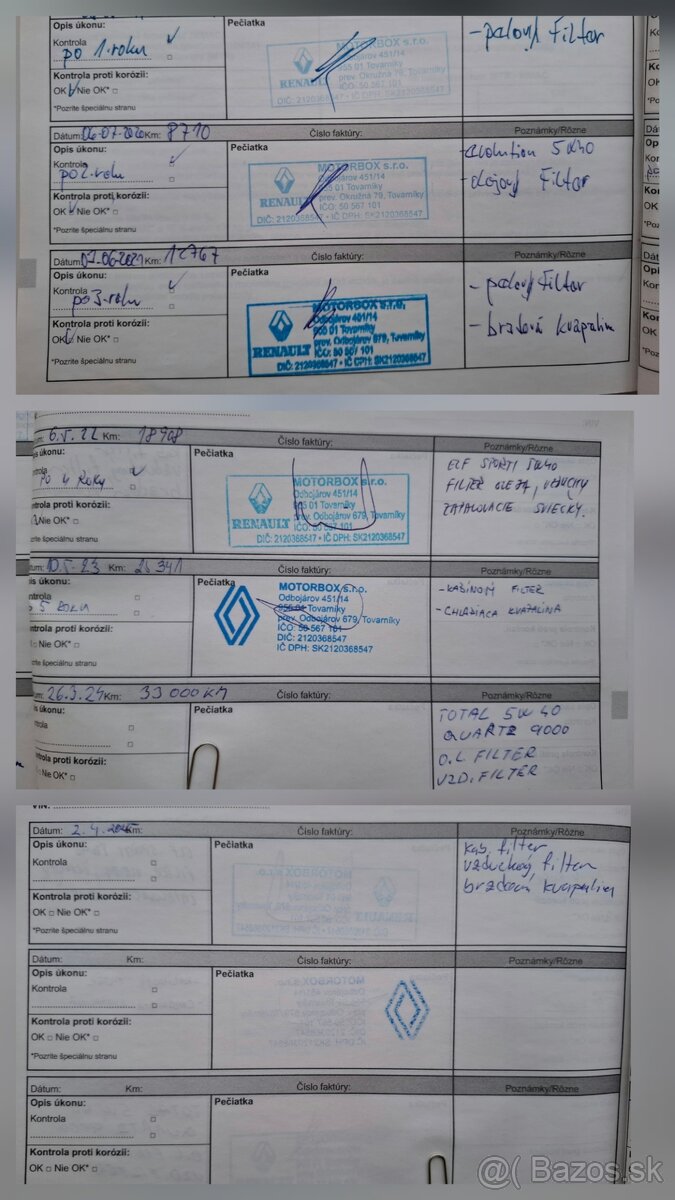 Opis úkonu:
Pečiatka
Kontrola
po 1. roku
- palový Filter
MOTORBOX s.r.o.
Odbojárov 451/14
955 01 Tovarníky
prev. Okružná 79, Tovarníky
IČO: 50 567 101
RENAULT
Kontrola proti korózii:
OK Nie OK*
*Pozrite špeciálnu stranu
Dátum: 06-07-2020 Km: 8710
Číslo faktúry:
Poznámky/Rôzne
Opis úkonu:
Pečiatka
Kontrola
po 2. roku
evolution 5W40
- olejový Filter
MOTORBOX s.r.o.
Odbojárov 451/14
955 01 Tovarníky
prev. Okružná 79, Tovarníky
IČO: 50 567 101
RENAULT
DIČ: 2120368547 • IČ DPH: SK2120368547
Kontrola proti korózii:
OK Nie OK*
*Pozrite špeciálnu stranu
Dátum: 07-06-2021 Km: 12767
Číslo faktúry:
Poznámky/Rôzne
Opis úkonu:
Pečiatka
Kontrola
po 3. roku
- palový Filter
- brzdová kvapalin
MOTORBOX s.r.o.
Odbojárov 451/14
955 01 Tovarníky
prev. Odbojárov 679, Tovarníky
IČO: 50 567 101
RENAULT
DIČ: 2120368547 • IČ DPH: SK2120368547
Kontrola proti korózii:
OK Nie OK*
*Pozrite špeciálnu stranu
6.5.22 Km: 18908
Číslo faktúry:
Poznámky/Rôzne
úkonu:
Pečiatka
PO 4 ROKY
ELF SPORTI 5W40
FILTER OLEJA, VZDUCHU
ZAPALOVACIE SVIEČKY.
MOTORBOX s.r.o.
Odbojárov 451/14
955 01 Tovarníky
prev. Odbojárov 679, Tovarníky
IČO: 50 567 101
RENAULT
DIČ: 2120368547 • IČ DPH: SK2120368547
ntrola proti korózii:
Nie OK*
zrite špeciálnu stranu
um: 10.5.23 Km: 25341
Číslo faktúry:
Poznámky/Rôzne
is úkonu:
Pečiatka
ntrola
5 ROKU
- KABÍNOVÝ FILTER
- CHLADIACA KVAPALINA
MOTORBOX s.r.o.
Odbojárov 451/14
955 01 Tovarníky
prev. Odbojárov 679, Tovarníky
IČO: 50 567 101
DIČ: 2120368547
IČ DPH: SK2120368547
ntrola proti korózii:
Nie OK*
zrite špeciálnu stranu
um: 26.3.24 Km: 33 000 KM
Číslo faktúry:
Poznámky/Rôzne
is úkonu:
Pečiatka
ntrola
TOTAL 5W40
QUARTZ 9000
OL FILTER
VZD. FILTER
ntrola proti korózii:
Nie OK*
zrite špeciálnu stranu
VIN:
Dátum: 2.4.2025 Km:
Číslo faktúry:
Poznámky/Rôzne
Opis úkonu:
Pečiatka
Kontrola
kab. filter
vzduchový filter
brzdová kvapalin
Kontrola proti korózii:
OK Nie OK*
*Pozrite špeciálnu stranu
Dátum: Km:
Číslo faktúry:
Poznámky/Rôzne
Opis úkonu:
Pečiatka
Kontrola
Kontrola proti korózii:
OK Nie OK*
*Pozrite špeciálnu stranu
Dátum: Km:
Číslo faktúry:
Poznámky/Rôzne
Opis úkonu:
Pečiatka
Kontrola
Kontrola proti korózii:
OK Nie OK*
@( Bazos.sk